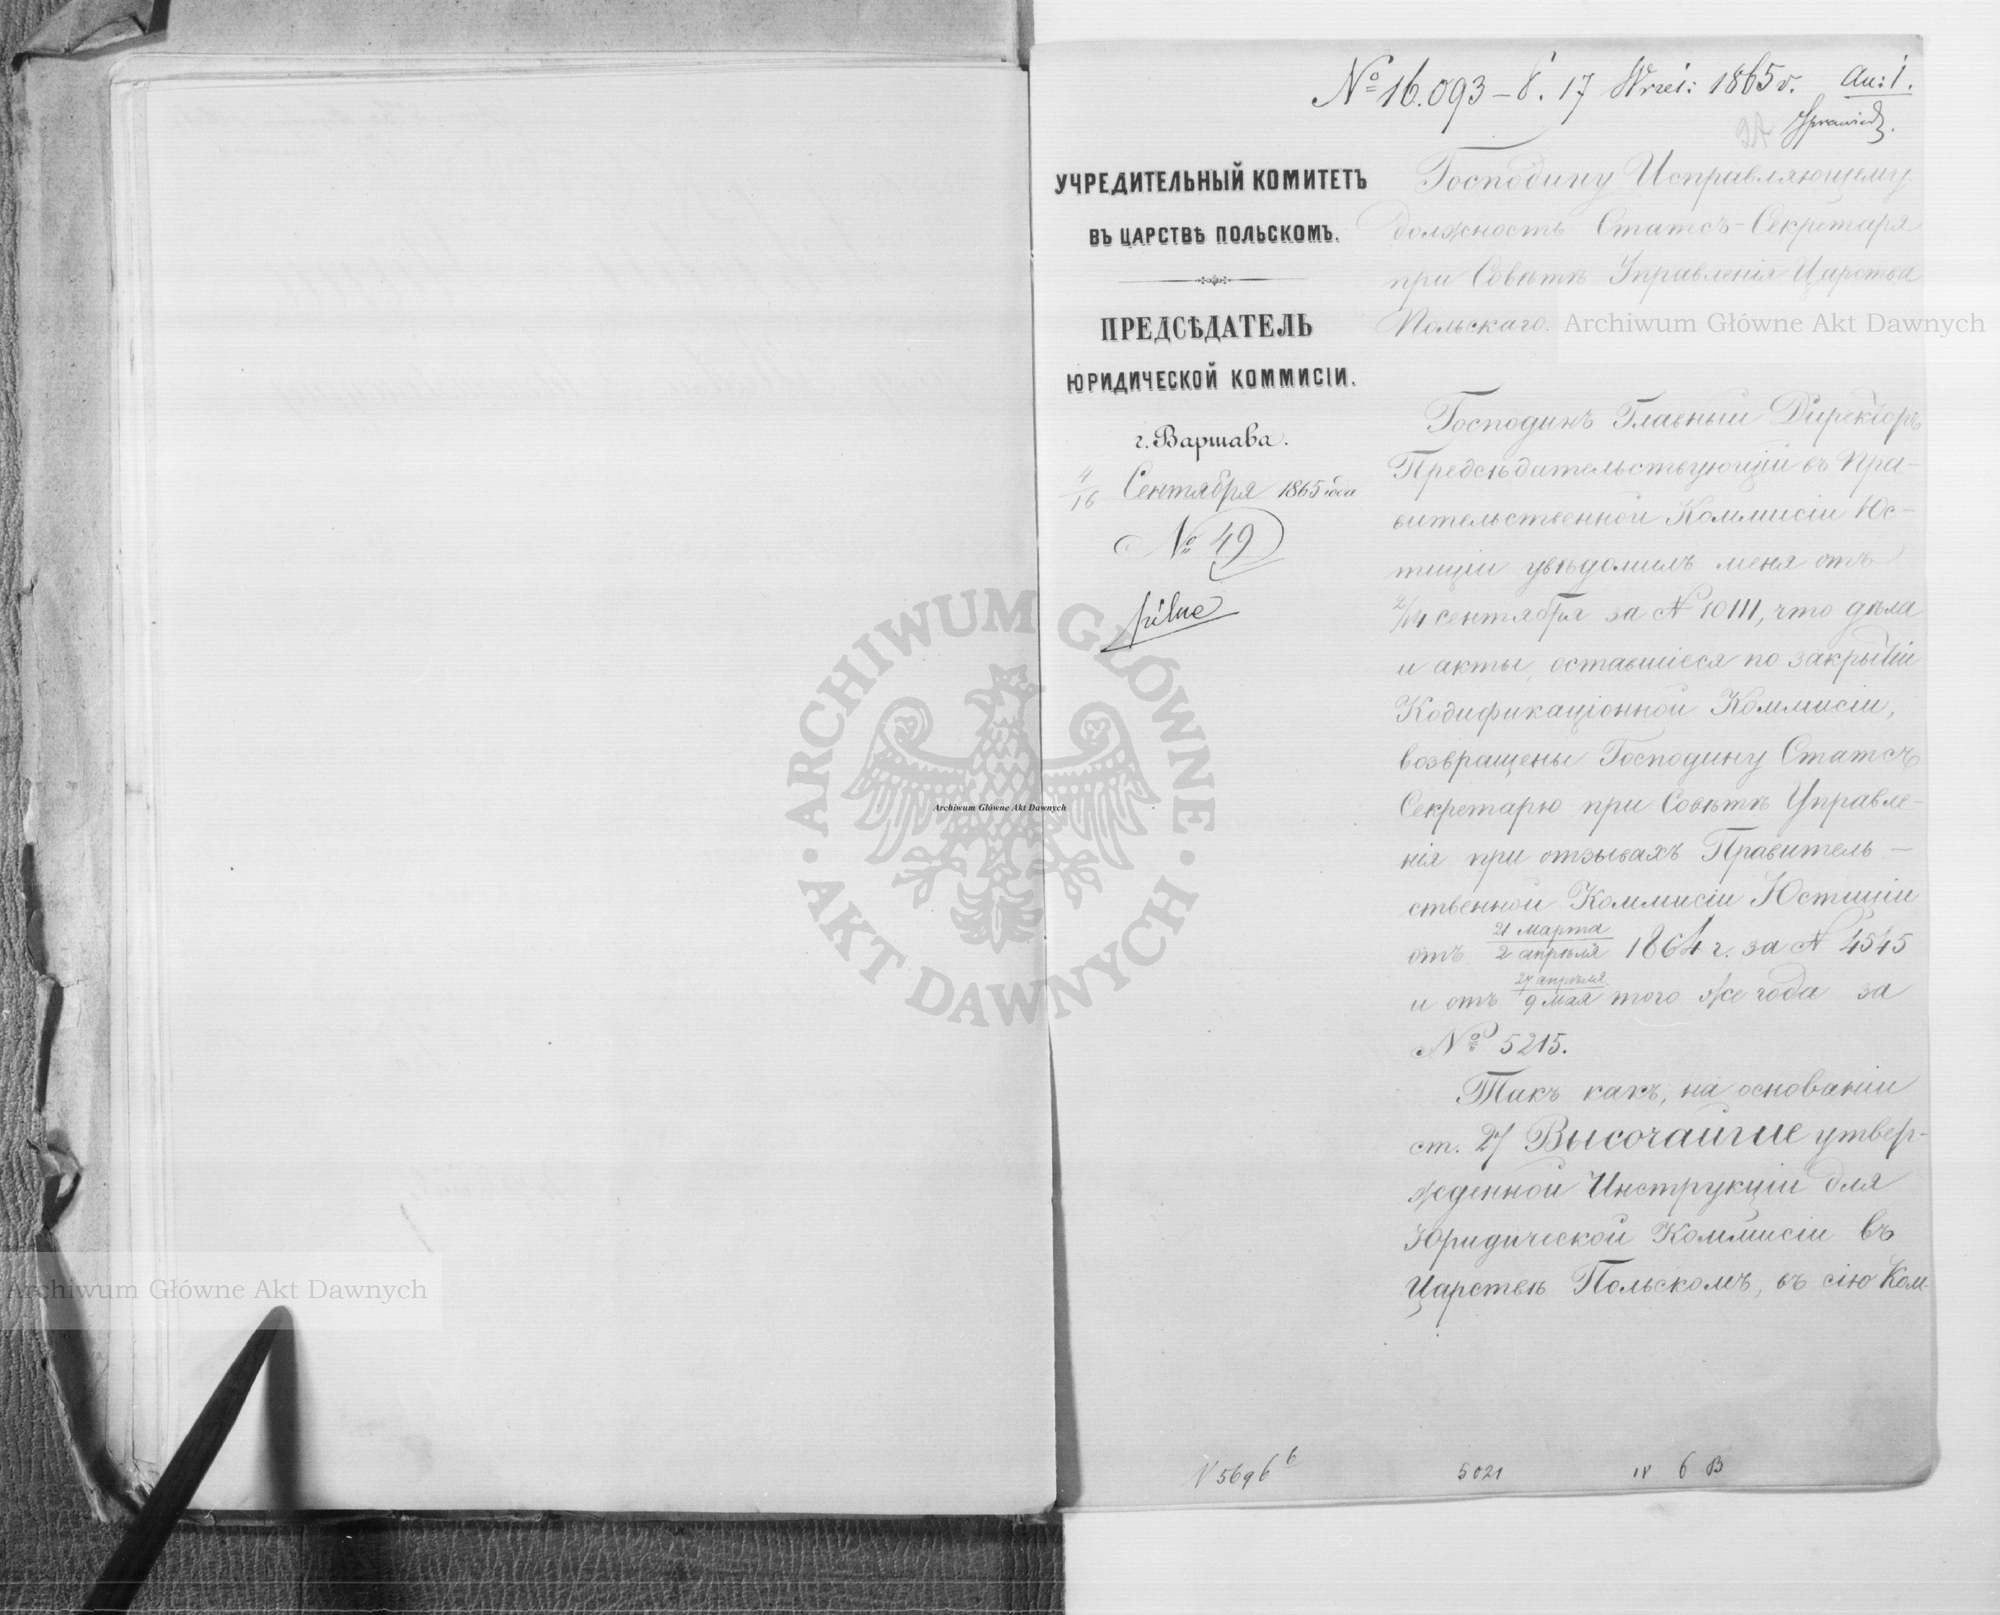 № 16.093 – d. 17 Wrześ: 1865 r.
УЧРЕДИТЕЛЬНЫЙ КОМИТЕТЪ
ВЪ ЦАРСТВѢ ПОЛЬСКОМЪ.
ПРЕДСѢДАТЕЛЬ
ЮРИДИЧЕСКОЙ КОММИСІИ.
г. Варшава.
4/16 Сентября 1865 года
№ 49
pilne
Господину Исправляющему
должность Статсъ-Секретаря
при Совѣтѣ Управленія Царства
Польскаго.
Господинъ Главный Директоръ
Предсѣдательствующій въ Пра-
вительственной Коммисіи Юс-
тиціи увѣдомилъ меня отъ
2/14 сентября за № 10111, что дѣла
и акты, оставшіеся по закрытіи
Кодификаціонной Коммисіи,
возвращены Господину Статсъ
Секретарю при Совѣтѣ Управле-
нія при отзывахъ Правитель-
ственной Коммисіи Юстиціи
отъ 21 марта/2 апрѣля 1864 г. за № 4545
и отъ 27 апрѣля/9 мая того же года за
№ 5215.
Такъ какъ, на основаніи
ст. 27 Высочайше утвер-
жденной Инструкціи для
Юридической Коммисіи въ
Царствѣ Польскомъ, въ сію Ком-
N 5696 b
5021
IV 6 B
ARCHIWUM GŁÓWNE AKT DAWNYCH
Archiwum Główne Akt Dawnych
Archiwum Główne Akt Dawnych
Archiwum Główne Akt Dawnych